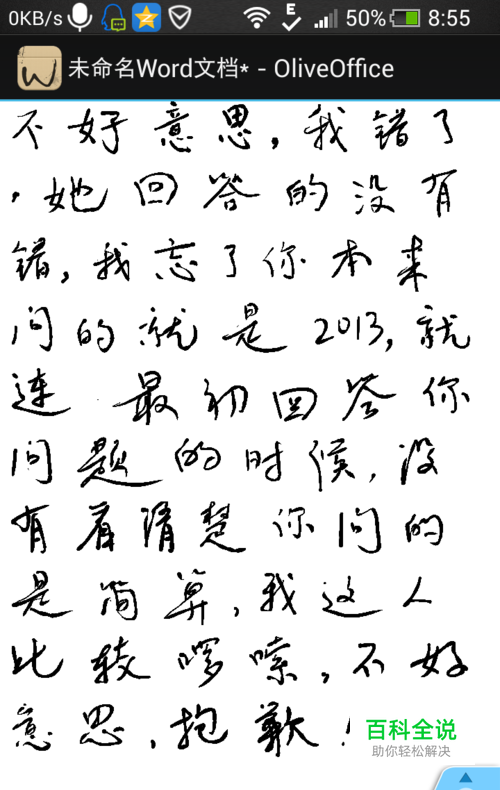 0KB/s E 50% 8:55
W 未命名Word文档* - OliveOffice
不好意思,我错了
,她回答的没有
错,我忘了你本来
问的就是2013,就
连.最初回答你
问题的时候,没
有看清楚你问的
是简算,我这人
比较啰嗦,不好
意思,抱歉!
百科全说
助你轻松解决